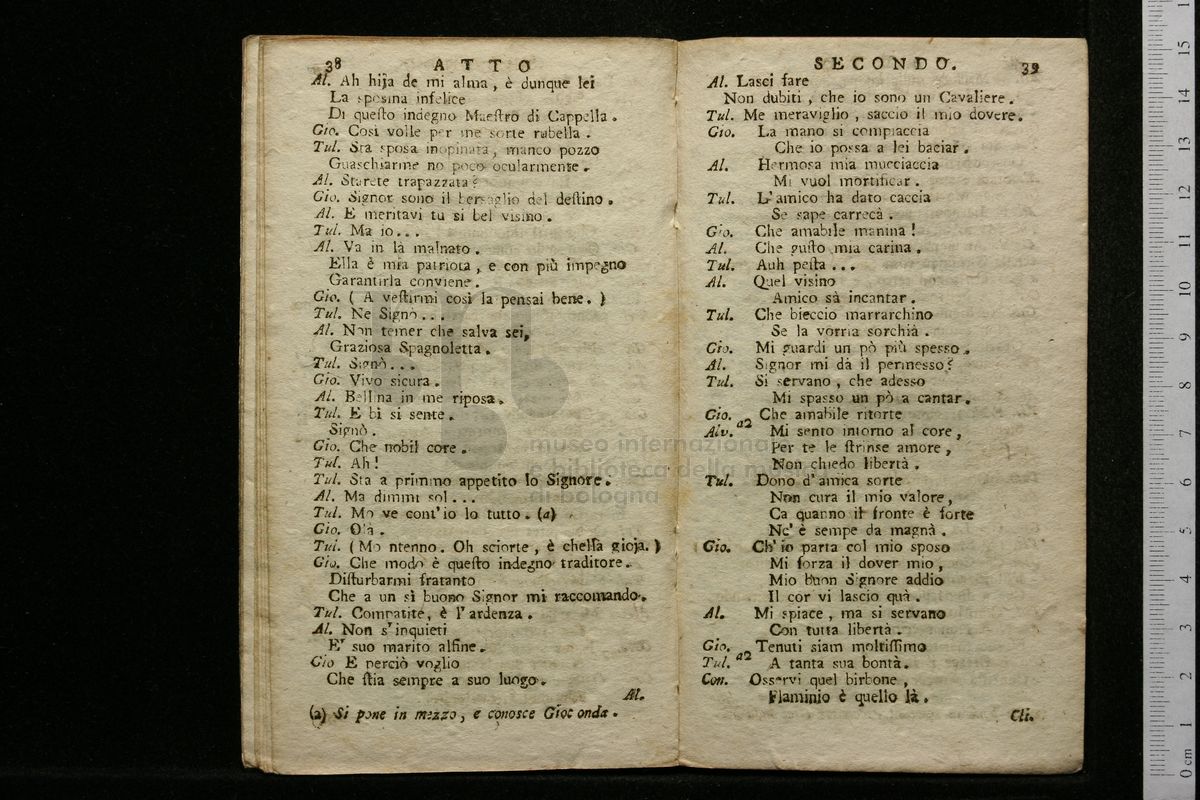 38 ATTO
Al. Ah hija de mi alma, è dunque lei
La sposina infelice
Di queſto indegno Maeſtro di Cappella.
Gio. Così volle per me sorte rubella.
Tul. Sta sposa inopinata, manco pozzo
Guaschiarme no poco ocularmente.
Al. Starete trapazzata?
Gio. Signor sono il bersaglio del deſtino.
Al. E meritavi tu sì bel visino.
Tul. Ma io...
Al. Va in là malnato.
Ella è mia patriota, e con più impegno
Garantirla conviene.
Gio. ( A veſtirmi così la pensai bene. )
Tul. Ne Signò...
Al. Non temer che salva sei,
Graziosa Spagnoletta.
Tul. Signò...
Gio. Vivo sicura.
Al. Bellina in me riposa.
Tul. E bi si sente.
Signò.
Gio. Che nobil core.
Tul. Ah!
Tul. Sta a primmo appetito lo Signore.
Al. Ma dimmi sol...
Tul. Mo ve cont'io lo tutto. (a)
Gio. Olà.
Tul. ( Mo ntenno. Oh sciorte, è cheſſa gioja. )
Gio. Che modo è queſto indegno traditore.
Diſturbarmi fratanto
Che a un sì buono Signor mi raccomando.
Tul. Compatite, è l'ardenza.
Al. Non s'inquieti
E' suo marito alfine.
Gio E perciò voglio
Che ſtia sempre a suo luogo.
Al.
(a) Si pone in mezzo, e conosce Gioconda.
SECONDO. 39
Al. Lasci fare
Non dubiti, che io sono un Cavaliere.
Tul. Me meraviglio, saccio il mio dovere.
Gio. La mano si compiaccia
Che io possa a lei baciar.
Al. Hermosa mia mucciaccia
Mi vuol mortificar.
Tul. L'amico ha dato caccia
Se sape carrecà.
Gio. Che amabile manina!
Al. Che guſto mia carina.
Tul. Auh peſta...
Al. Quel visino
Amico sà incantar.
Tul. Che bieccio marrarchino
Se la vorria sorchià.
Gio. Mi guardi un pò più spesso.
Al. Signor mi dà il permesso?
Tul. Si servano, che adesso
Mi spasso un pò a cantar.
Gio. a2 Che amabile ritorte
Alv. Mi sento intorno al core,
Per te le ſtrinse amore,
Non chiedo libertà.
Tul. Dono d'amica sorte
Non cura il mio valore,
Ca quanno il fronte è forte
Nc' è sempe da magnà.
Gio. Ch'io parta col mio sposo
Mi forza il dover mio,
Mio buon Signore addio
Il cor vi lascio quà.
Al. Mi spiace, ma si servano
Con tutta libertà.
Gio. a2 Tenuti siam moltiſſimo
Tul. A tanta sua bontà.
Con. Osservi quel birbone,
Flaminio è quello là.
Cli.
museo internazionale
e biblioteca della musica
di bologna
0 cm 1 2 3 4 5 6 7 8 9 10 11 12 13 14 15